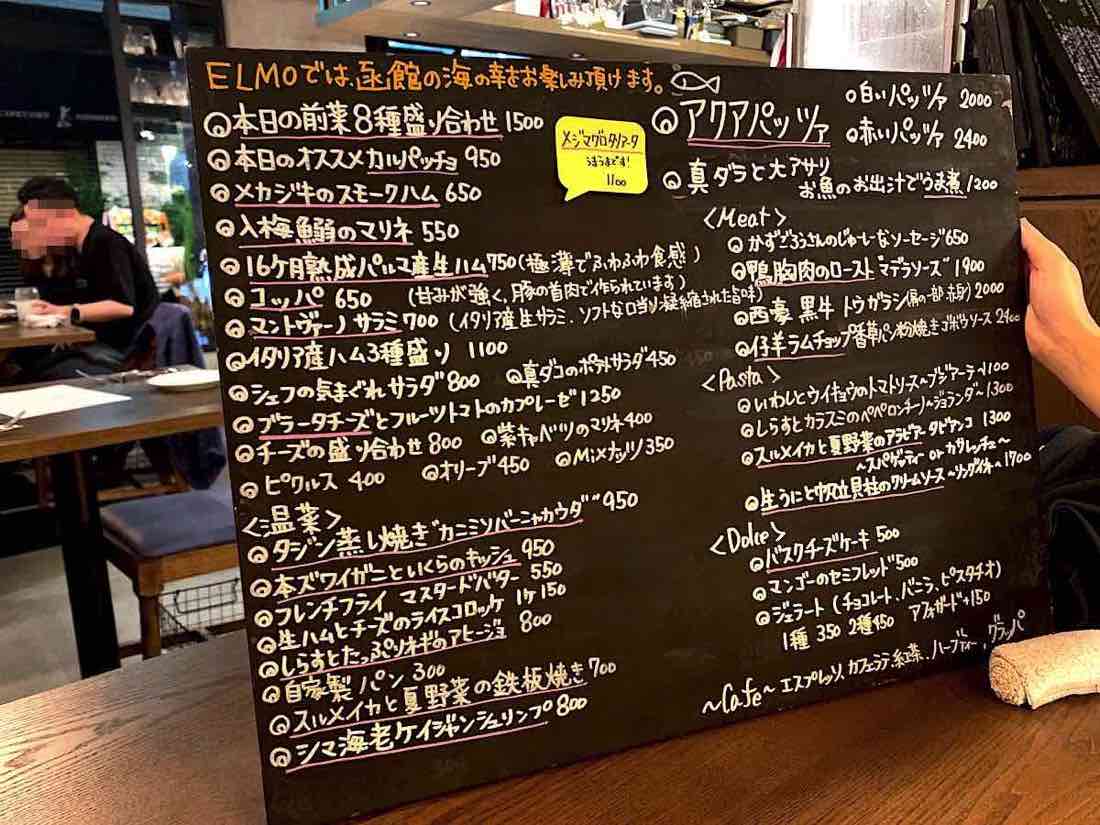 ELMOでは、函館の海の幸をお楽しみ頂けます。
本日の前菜8種盛り合わせ 1500
本日のオススメカルパッチョ 950
メカジキのスモークハム 650
入梅鰯のマリネ 550
16ケ月熟成パルマ産生ハム 750 (極薄でふわふわ食感)
コッパ 650 (甘みが強く、豚の首肉で作られています)
マントヴァーノサラミ 700 (イタリア産生サラミ、ソフトな口当り、凝縮された旨味)
イタリア産ハム3種盛り 1100
シェフの気まぐれサラダ 800
真ダコのポテトサラダ 450
ブラータチーズとフルーツトマトのカプレーゼ 1250
チーズの盛り合わせ 800
紫キャベツのマリネ 400
ピクルス 400
オリーブ 450
Mixナッツ 350
<温菜>
タジン蒸し焼き カニミソバーニャカウダ 950
本ズワイガニといくらのキッシュ 950
フレンチフライ マスタードバター 550
生ハムとチーズのライスコロッケ 1ケ 150
しらすとたっぷりネギのアヒージョ 800
自家製パン 300
スルメイカと夏野菜の鉄板焼き 700
シマ海老ケイジャンシュリンプ 800
メジマグロタリアータ
うまうまです!
1100
アクアパッツァ
白いパッツァ 2000
赤いパッツァ 2400
真ダラと大アサリ
お魚のお出汁でうま煮 1200
<Meat>
かずごろうさんのじゅーしーなソーセージ 650
鴨胸肉のロースト マデラソース 1900
西豪 黒牛 トウガラシ(肩の一部 赤身) 2000
仔羊ラムチョップ 香草パン粉焼き ゴボウソース 2400
<Pasta>
いわしとウイキョウのトマトソース~ブジアーテ~ 1100
しらすとカラスミのペペロンチーノ~ジョランダ~ 1300
スルメイカと夏野菜のアラビアータビアンコ 1300
~スパゲッティー or カサレッチェ~
生うにと帆立貝柱のクリームソース~リングイネ~ 1700
<Dolce>
バスクチーズケーキ 500
マンゴーのセミフレッド 500
ジェラート (チョコレート、バニラ、ピスタチオ)
1種 350 2種 450 アフォガード+150
~Cafe~ エスプレッソ、カフェラテ、紅茶、ハーブティー、グラッパ